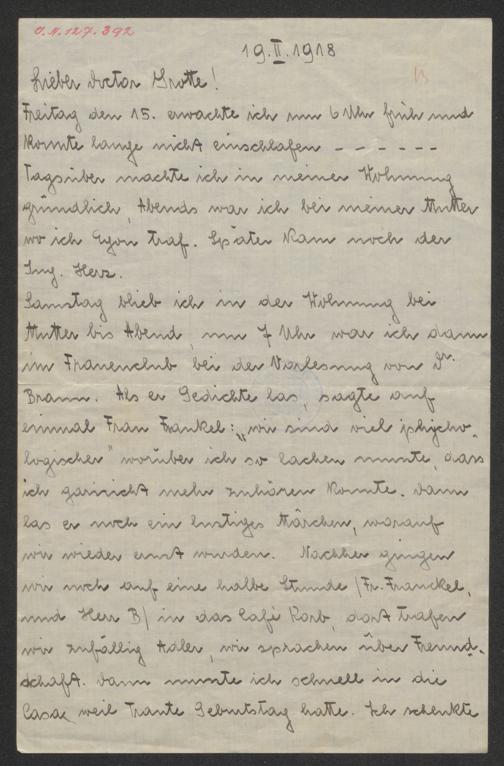 O.N.127.392
19.II.1918
Lieber Doctor Grotte!
Freitag den 15. erwachte ich um 6 Uhr früh und
konnte lange nicht einschlafen - - - - - -
Tagsüber machte ich in meiner Wohnung
gründlich, Abends war ich bei meiner Mutter
wo ich Egon traf. Später kam noch der
Ing. Herz.
Samstag blieb ich in der Wohnung bei
Mutter bis Abend, um 7 Uhr war ich dann
im Frauenclub bei der Vorlesung von Dr.
Braun. Als er Gedichte las, sagte auf
einmal Frau Frankel: „wir sind viel psycho-
logischer" worüber ich so lachen musste, dass
ich garnicht mehr zuhören konnte. Dann
las er noch ein lustiges Märchen, worauf
wir wieder ernst wurden. Nachher gingen
wir noch auf eine halbe Stunde /Fr. Franckel,
und Herr B/ in das Café Korb, dort trafen
wir zufällig Adler, wir sprachen über Freund-
schaft. Dann musste ich schnell in die
Casa, weil Trante Geburtstag hatte. Ich schenkte